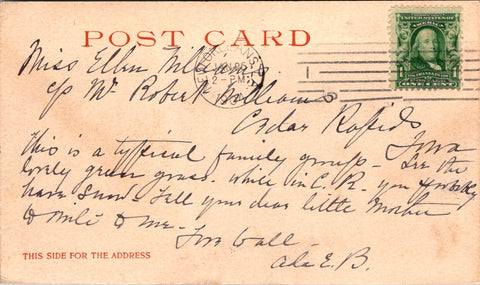 POST CARD
UNITED STATES OF AMERICA
FRANKLIN
1 ONE CENT 1
JAN 25
2-PM
Miss Ellen Williams
c/o Mr Robert Williams
Cedar Rapids
Iowa
This is a typical family group - See the
lovely green grass - while in C. R. you
have Snow - Tell your dear little Mother
to write to me -
all -
Ada E. B.
THIS SIDE FOR THE ADDRESS